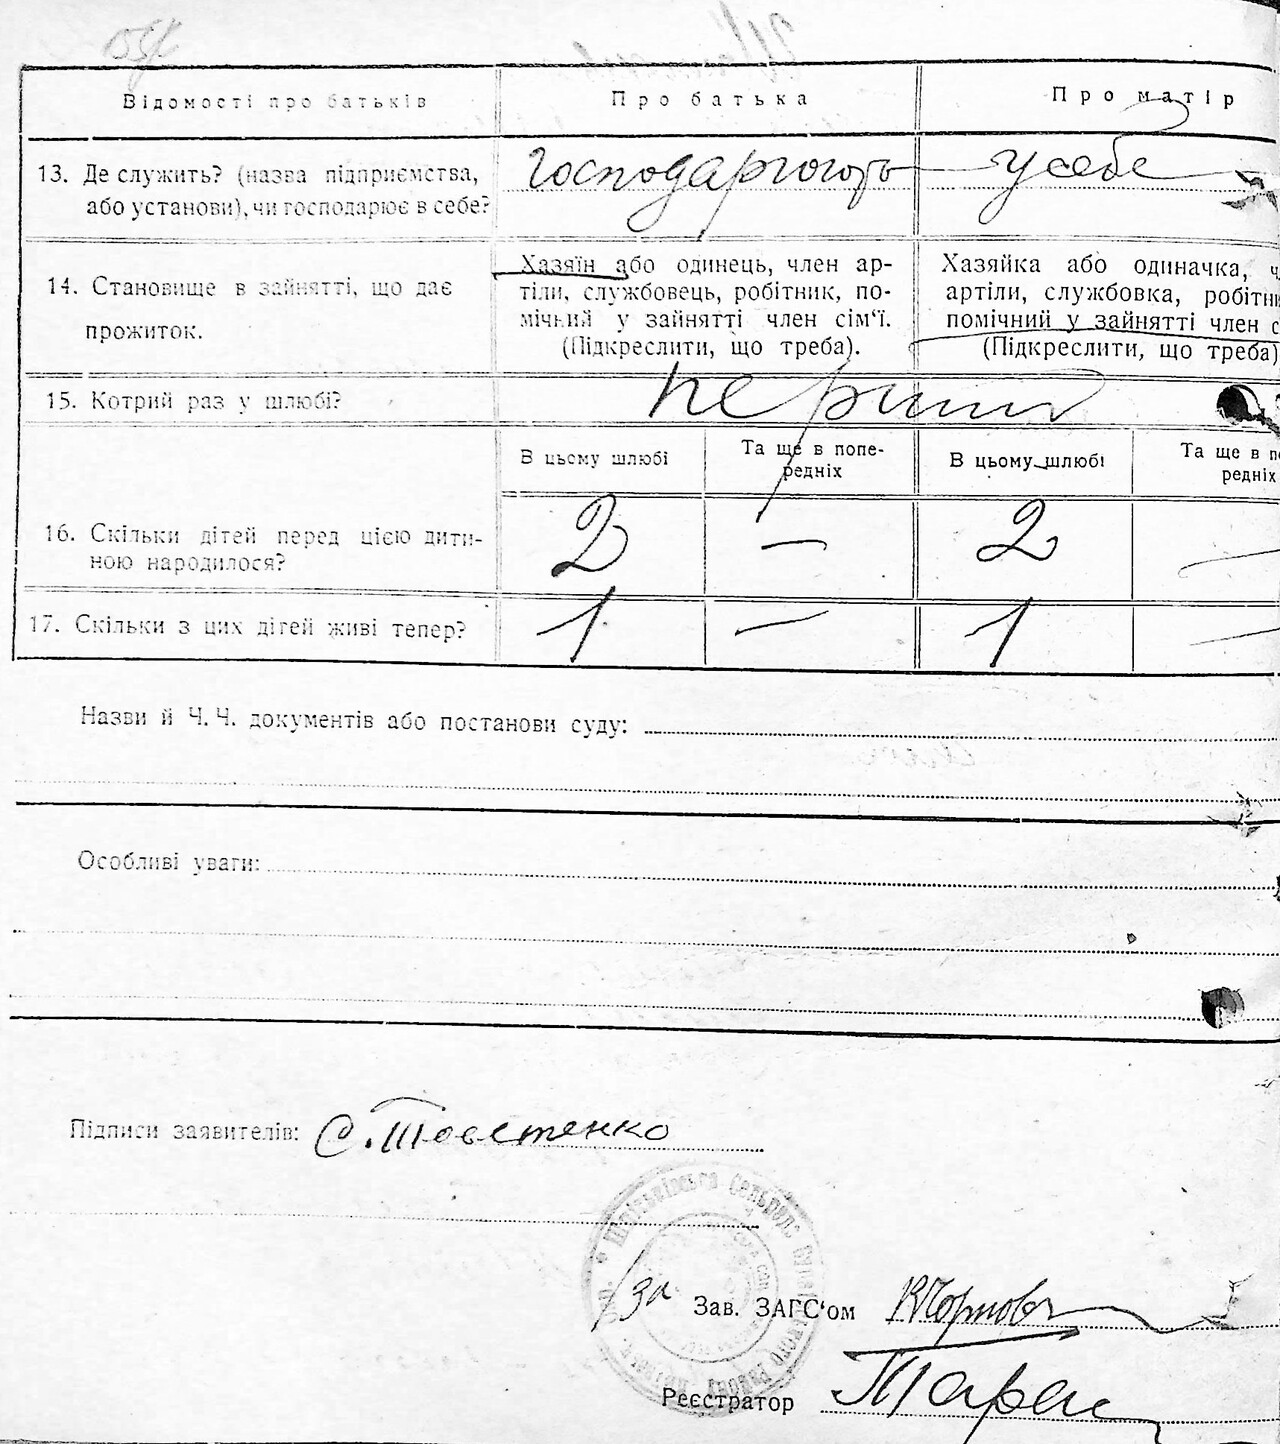 Відомості про батьків Про батька Про матір
13. Де служить? (назва підприємства, або установи), чи господарює в себе? господарюють у себе
14. Становище в зайнятті, що дає прожиток.
Хазяїн або одинець, член ар-
тіли, службовець, робітник, по-
мічний у зайнятті член сім‘ї.
(Підкреслити, що треба).
Хазяйка або одиначка, ч
артіли, службовка, робітн
помічний у зайнятті член с
(Підкреслити, що треба)
15. Котрий раз у шлюбі? перший
В цьому шлюбі Та ще в попе-
редніх
В цьому шлюбі Та ще в по
редніх
16. Скільки дітей перед цією дити-
ною народилося? 2 — 2 —
17. Скільки з цих дітей живі тепер? 1 — 1 —
Назви й Ч. Ч. документів або постанови суду:
Особливі уваги:
Підписи заявителів: С. Товстенко
/за Зав. ЗАГС‘ом
Реєстратор Таран